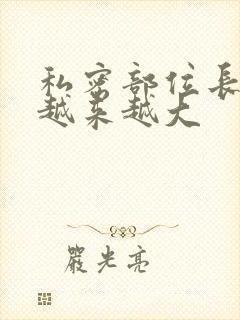 私密部位長
越来越大
嚴光亮